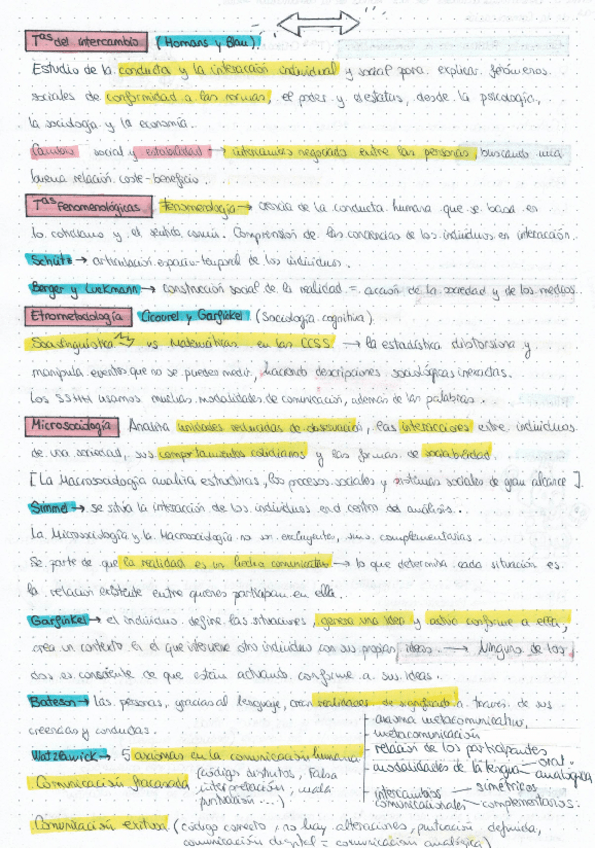 Tas del intercambio (Homans y Blau)
Estudio de la conducta y la interacción individual y social para explicar fenómenos
sociales de conformidad a las normas, el poder y el estatus, desde la psicología,
la sociología y la economía.
Cambio social y estabilidad → intercambios negociado entre las personas, buscando una
buena relación coste-beneficio.
Tas Fenomenológicas Fenomenología → ciencia de la conducta humana que se basa en
lo cotidiano y el sentido común. Comprensión de las conciencias de los individuos en interacción.
Schütz → articulación espacio-temporal de los individuos.
Berger y Luckmann → construcción social de la realidad = acción de la sociedad y de los medios.
Etnometodología Cicourel y Garfinkel (sociología cognitiva)
Sociolingüística vs Matemáticas en las CCSS → la estadística distorsiona y
manipula eventos que no se pueden medir, haciendo descripciones sociológicas inexactas.
Los SSHH usamos muchas modalidades de comunicación, además de las palabras.
Microsociología Analiza unidades reducidas de observación, las interacciones entre individuos
de una sociedad, sus comportamientos cotidianos y las formas de sociabilidad.
[La Macrosociología analiza estructuras, los procesos sociales y sistemas sociales de gran alcance].
Simmel → se sitúa la interacción de los individuos en el centro del análisis.
La Microsociología y la Macrosociología no son excluyentes, sino complementarias.
Se parte de que la realidad es un hecho comunicativo → lo que determina cada situación es
la relación existente entre quienes participan en ella.
Garfinkel → el individuo define las situaciones, genera una idea y actúa conforme a ella,
crea un contexto en el que interviene otro individuo con sus propias ideas → Ninguno de los
dos es consciente de que están actuando conforme a sus ideas.
Bateson → las personas, gracias al lenguaje, crean realidades de significado a través de sus
creencias y conductas.
Watzlawick → 5 axiomas en la comunicación humana
axioma metacomunicativo,
metacomunicación
relación de los participantes
modalidades de la lengua oral analógica
intercambios comunicacionales simétricos complementarios.
Comunicación fracasada (códigos distintos, falsa
interpretación, mala
puntuación...)
Comunicación exitosa (código correcto, no hay alteraciones, puntuación definida,
comunicación digital = comunicación analógica)